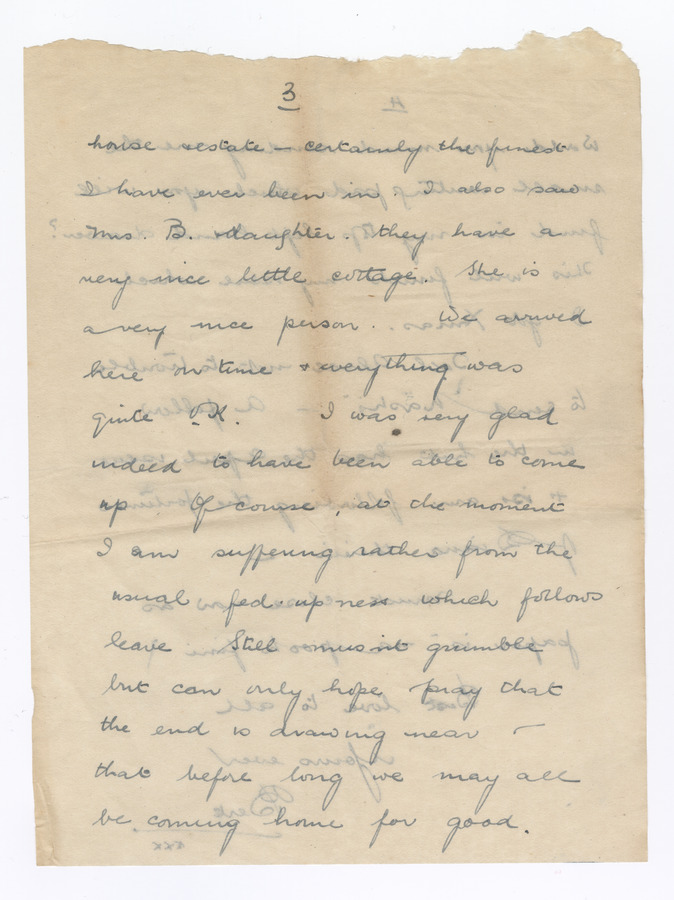 3
house & estate – certainly the finest
I have ever been in. I also saw
Mrs. B. & daughter. They have a
very nice little cottage. She is
a very nice person. We arrived
here on time & everything was
quite O.K. I was very glad
indeed to have been able to come
up. Of course, at the moment
I am suffering rather from the
usual fed-up ness which follows
leave. Still mus'nt grumble
but can only hope & pray that
the end is drawing near –
that before long we may all
be coming home for good.